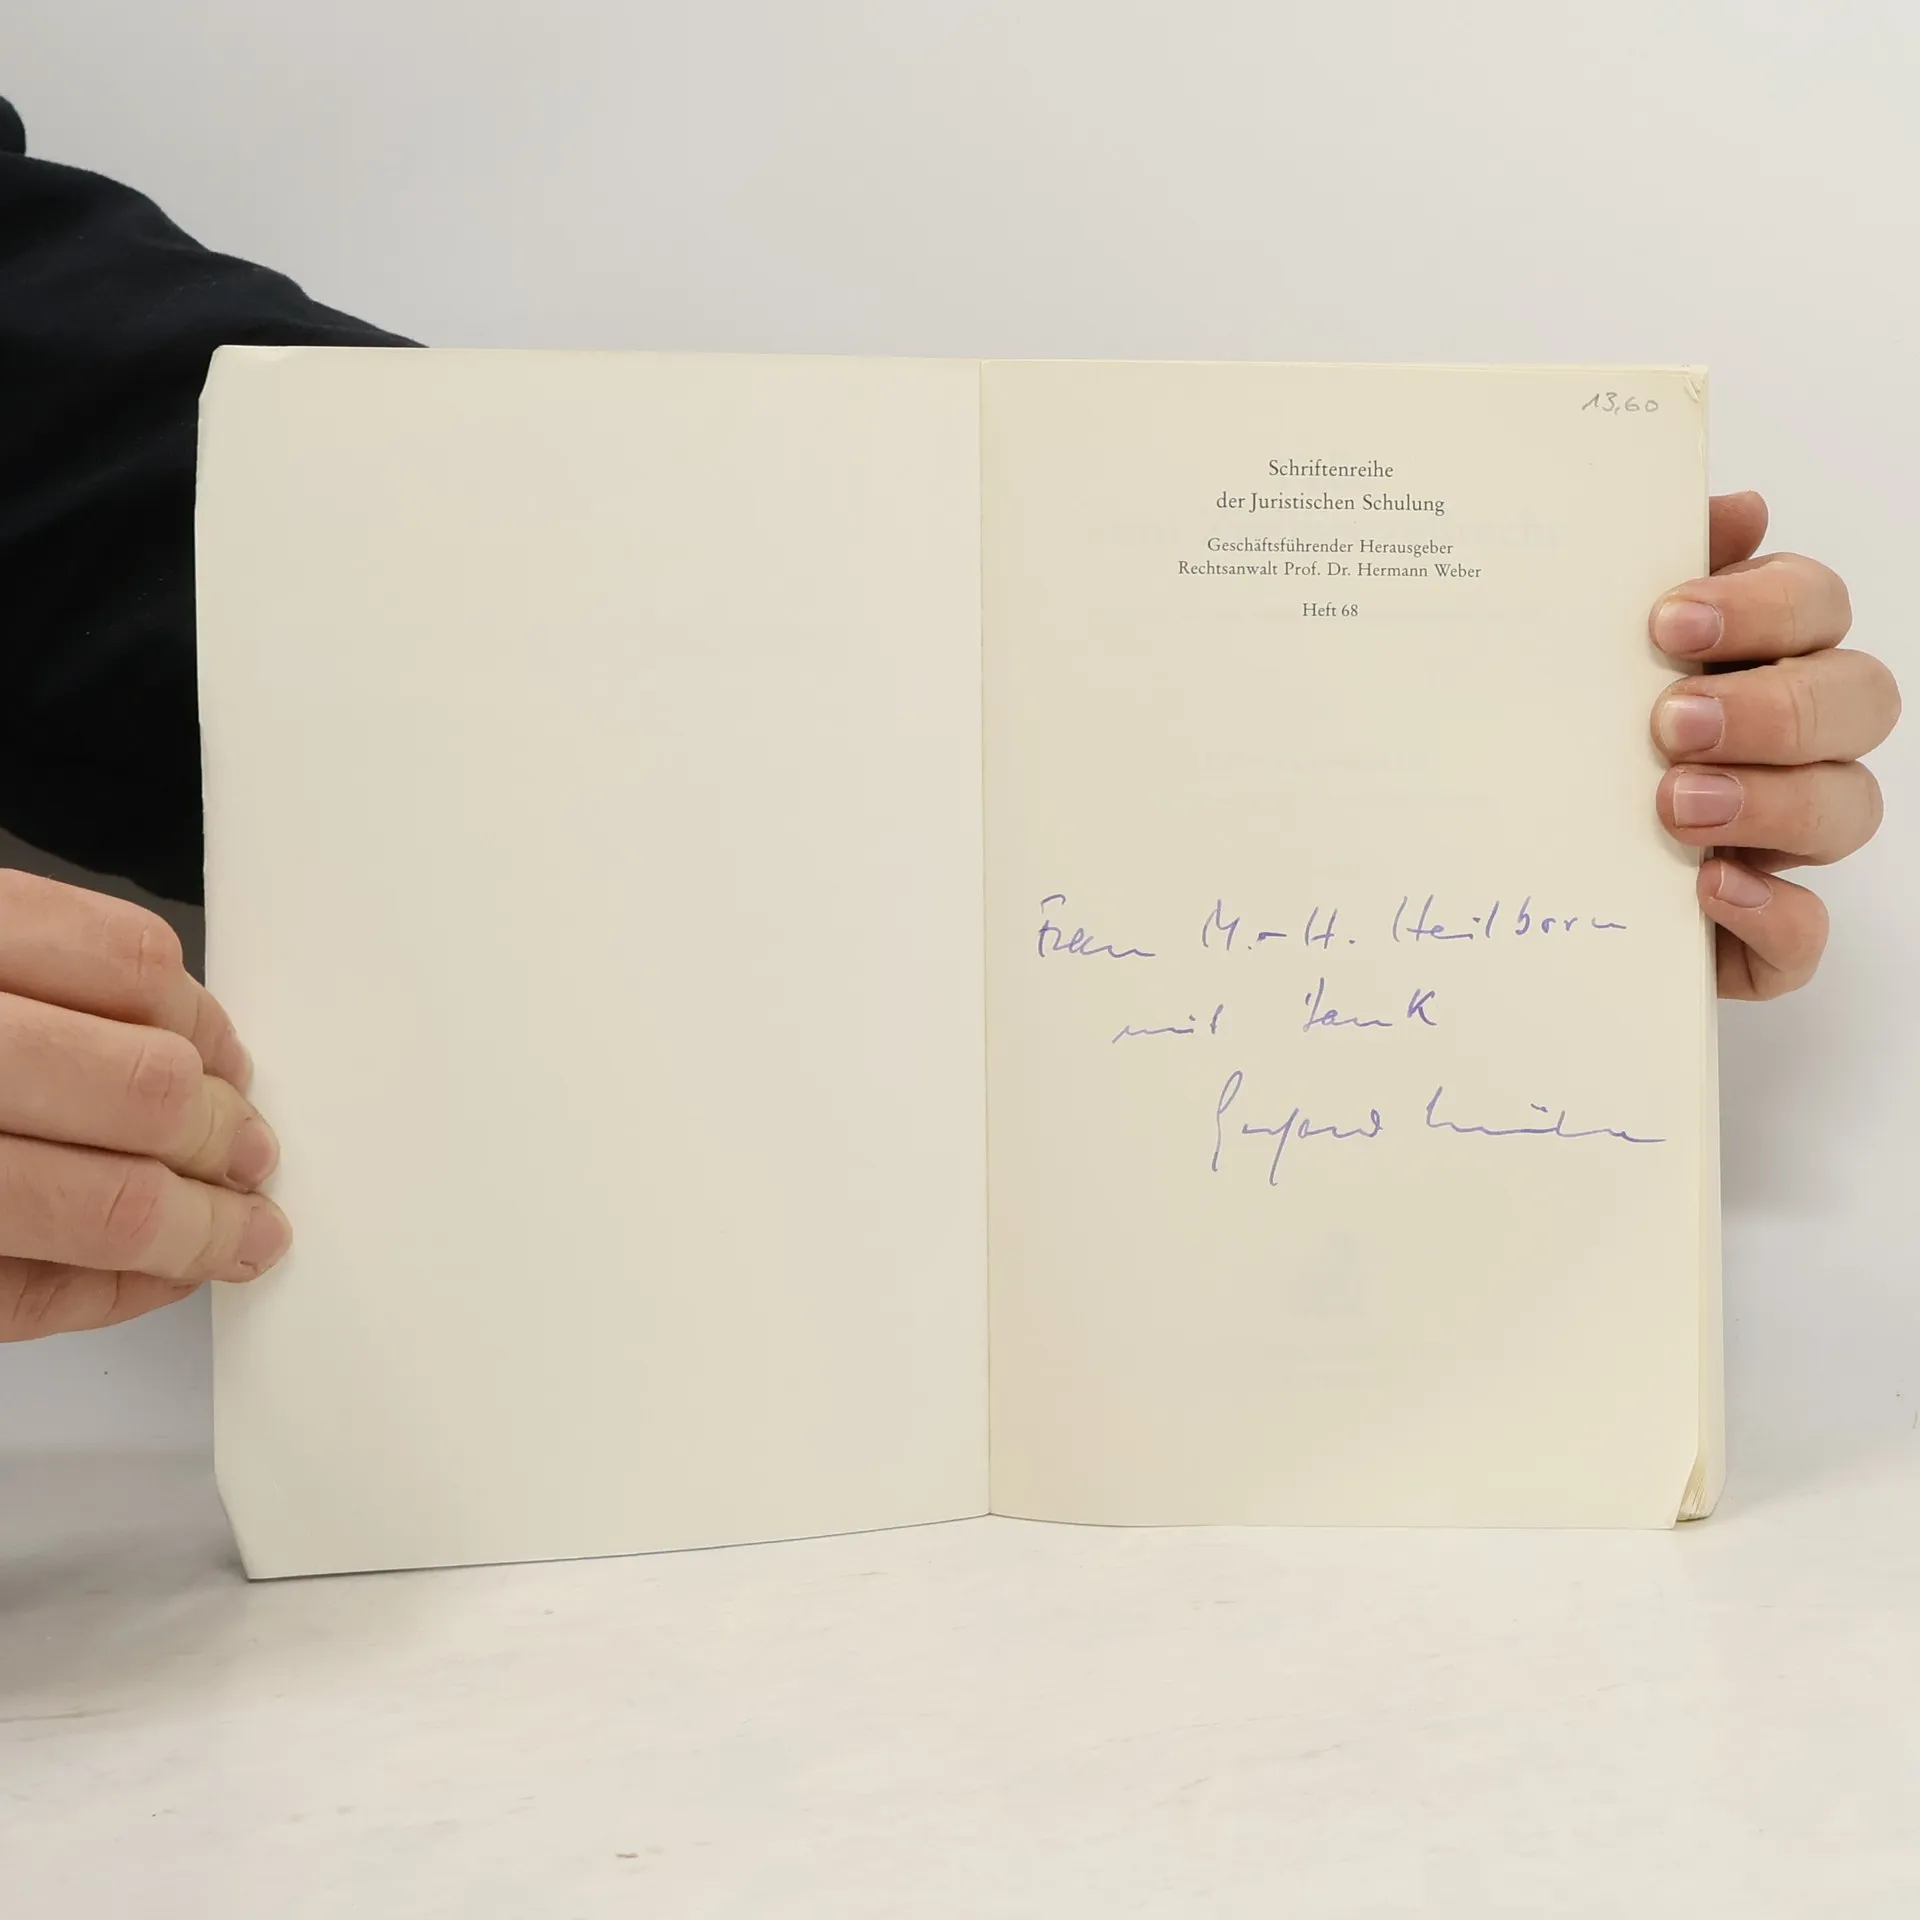 13,60
Schriftenreihe
der Juristischen Schulung
Geschäftsführender Herausgeber
Rechtsanwalt Prof. Dr. Hermann Weber
Heft 68
Frau M.-H. Heilborn
mit Dank
Gerhard